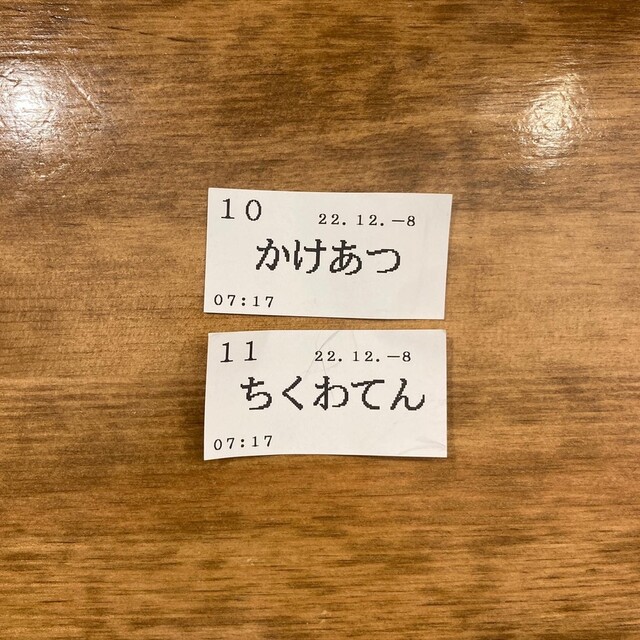 10
22.12.-8
かけあつ
07:17
11
22.12.-8
ちくわてん
07:17